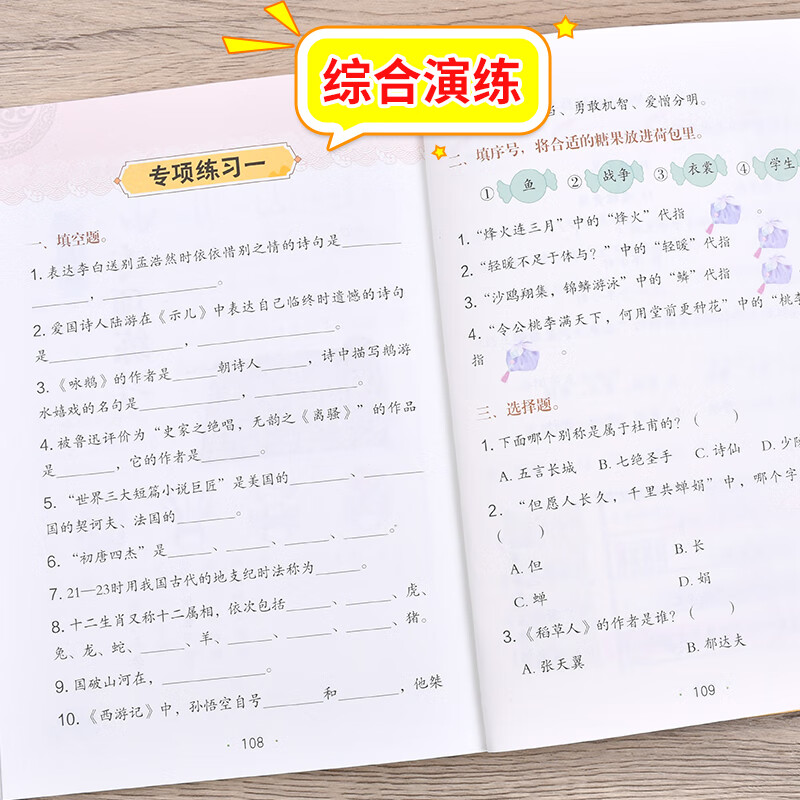 综合演练
专项练习一
一、填空题。
1. 表达李白送别孟浩然时依依惜别之情的诗句是______
______，____________。
2. 爱国诗人陆游在《示儿》中表达自己临终时遗憾的诗句
是____________，____________。
3.《咏鹅》的作者是____朝诗人____，诗中描写鹅游
水嬉戏的名句是________，________。
4. 被鲁迅评价为“史家之绝唱，无韵之《离骚》”的作品
是______，它的作者是______。
5.“世界三大短篇小说巨匠”是美国的______、______
国的契诃夫、法国的______。
6.“初唐四杰”是____、____、____、____。
7. 21—23时用我国古代的地支纪时法称为____。
8. 十二生肖又称十二属相，依次包括____、____、虎、
兔、龙、蛇、____、羊、____、____、____、猪。
9. 国破山河在，__________。
10.《西游记》中，孙悟空自号______和______，他桀
· 108 ·
、勇敢机智、爱憎分明。
二、填序号，将合适的糖果放进荷包里。
① 鱼 ② 战争 ③ 衣裳 ④ 学生
1.“烽火连三月”中的“烽火”代指 。
2.“轻暖不足于体与？”中的“轻暖”代指
3.“沙鸥翔集，锦鳞游泳”中的“鳞”代指
4.“令公桃李满天下，何用堂前更种花”中的“桃李
指 。
三、选择题。
1. 下面哪个别称是属于杜甫的？（ ）
A. 五言长城 B. 七绝圣手 C. 诗仙 D. 少陵
2.“但愿人长久，千里共婵娟”中，哪个字
（ ）
A. 但 B. 长
C. 蝉 D. 娟
3.《稻草人》的作者是谁？（ ）
A. 张天翼 B. 郁达夫
· 109 ·